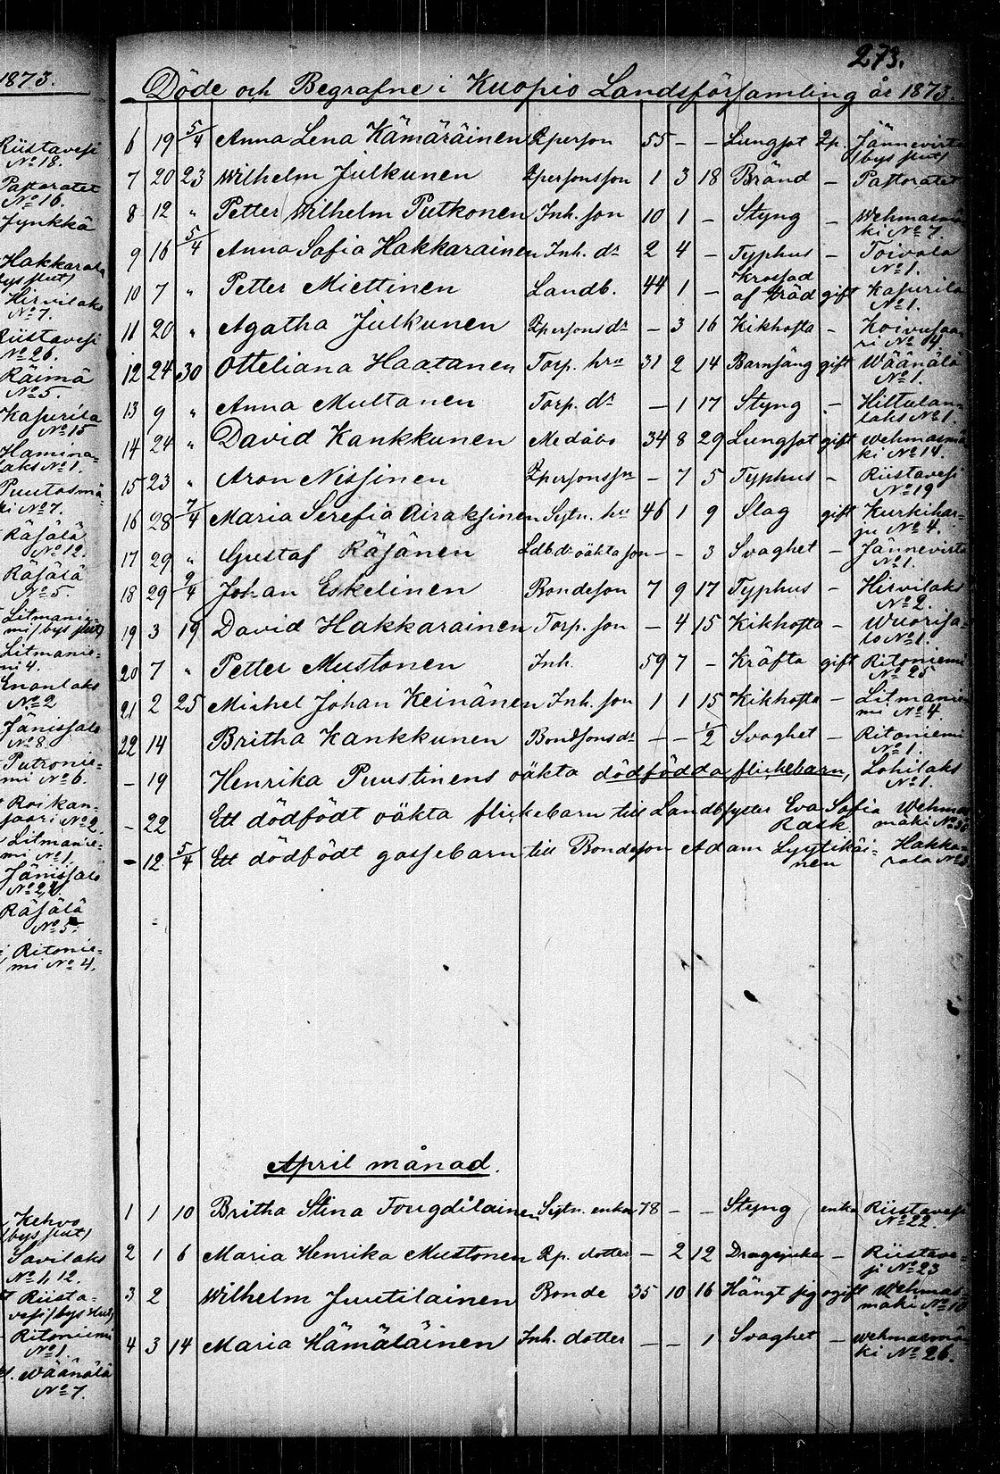 1873.
Riistavesi
No 18.
Pastoratet
No 16.
Jynkkä
Hakkarala
(bys slut)
Hirvilaks
No 7.
Riistavesi
No 26.
Räimä
No 5.
Kasurila
No 15
Hamina-
laks No 1.
Puutosmä-
ki No 7.
Räsälä
No 12.
Räsälä
No 5.
Litmanie-
mi (bys slut)
Litmanie-
mi 4.
Enonlaks
No 2
Jänissalo
No 8.
Putronie-
mi No 6.
Roikan-
saari No 2.
Litmanie-
mi No 1.
Jänissalo
No 22.
Räsälä
No 5.
Ritonie-
mi No 4.
Kehvo
(bys slut)
Savilaks
No 1, 12.
Riista-
vesi (bys slut)
Ritoniemi
No 1.
Wäänälä
No 7.
273.
Döde och Begrafne i Kuopio Landsförsamling år 1873.
6 19 5/4 Anna Lena Kämäräinen Qperson 55 - - Lungsot Qp. Jännevirta
(bys slut)
7 20 23 Wilhelm Julkunen Qpersonsson 1 3 18 Bränd - Pastoratet
8 12 " Petter Wilhelm Putkonen Inh. son 10 1 - Styng - Wehmasmä-
ki No 7.
9 16 5/4 Anna Sofia Hakkarainen Inh. dr 2 4 - Typhus - Toivala
No 1.
10 7 " Petter Miettinen Landb. 44 1 - Krossad
af träd gift Kasurila
No 1.
11 20 " Agatha Julkunen Qpersons dr - 3 16 Kikhosta - Koivusaa-
ri No 14.
12 24 30 Otteliana Haatanen Torp. hru 31 2 14 Barnsäng gift Wäänälä
No 1.
13 9 " Anna Multanen Torp. dr - 1 17 Styng - Hiltulan-
laks No 1.
14 24 " David Kankkunen Medåbo 34 8 29 Lungsot gift Wehmasmä-
ki No 14.
15 23 " Aron Nissinen Qpersonsson - 7 5 Typhus - Riistavesi
No 19
16 28 7/4 Maria Serefia Airaksinen Sytn. hru 46 1 9 Slag gift Kurkihar-
ju No 4.
17 29 " Gustaf Räsänen Ldb. dr oäkta son - - 3 Svaghet - Jännevirta
No 1.
18 29 9/4 Johan Eskelinen Bondeson 7 9 17 Typhus - Hirvilaks
No 2.
19 3 19 David Hakkarainen Torp. son - 4 15 Kikhosta - Wuorisa-
lo No 1.
20 7 " Petter Mustonen Inh. 59 7 - Kräfta gift Ritoniemi
No 25
21 2 25 Michel Johan Keinänen Inh. son 1 1 15 Kikhosta - Litmanie-
mi No 4.
22 14 Britha Kankkunen Bondsons dr - - 1/2 Svaghet - Ritoniemi
No 1.
- 19 Henrika Puustinens oäkta dödfödda flickebarn, Lohilaks
No 1.
- 22 Ett dödfödt oäkta flickebarn till Landbsyster Eva Sofia Wehmas-
Rask. mäki No 36
- 12 5/4 Ett dödfödt gossebarn till Bondeson Adam Lyytikäi- Hakka-
nen rala No 3
April månad.
1 1 10 Britha Stina Tougdilainen Sytn. enka 78 - - Styng enka Riistavesi
No 22.
2 1 6 Maria Henrika Mustonen Qp. dotter - 2 12 Dragsjuka - Riistave-
si No 23
3 2 Wilhelm Juutilainen Bonde 35 10 16 Hängt sig ogift Wehmas-
mäki No 10
4 3 14 Maria Hämäläinen Inh. dotter - - 1 Svaghet - Wehmasmä-
ki No 26.